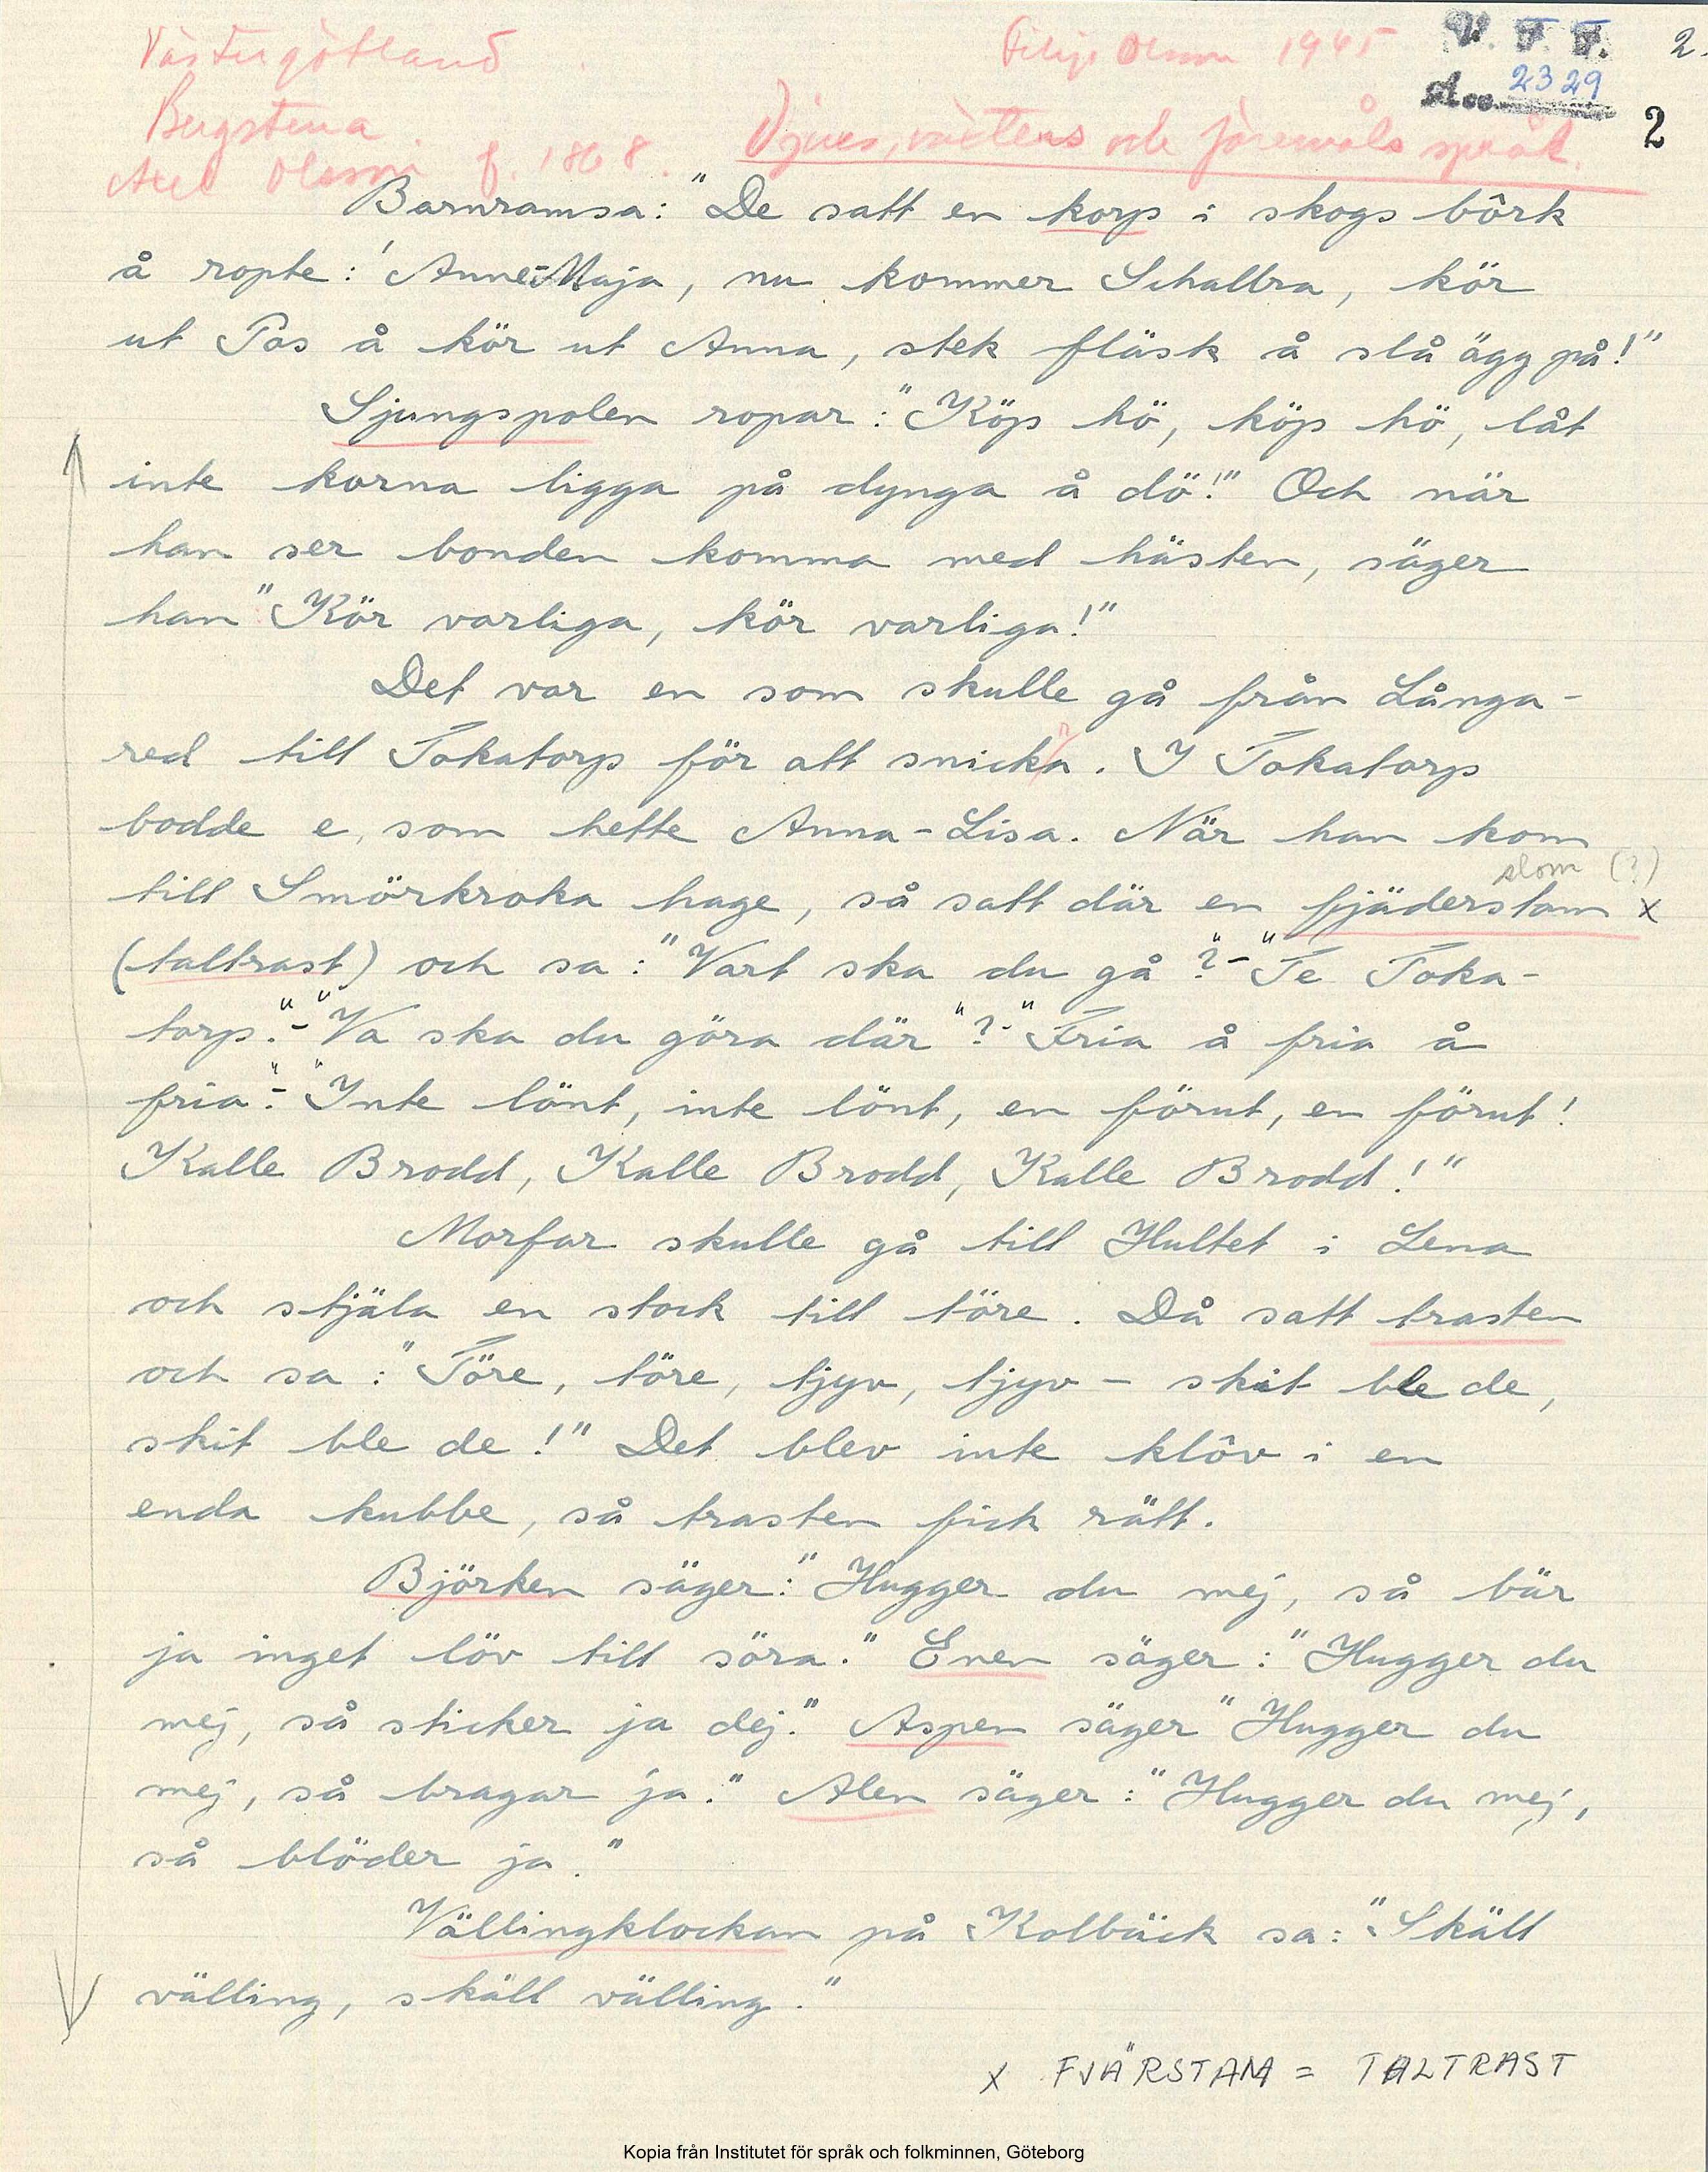 Västergötland
Filip Olsson 1945
V. F. F.
2.
2329
2
Bergstena
Djurs, växters och föremåls språk.
Axel Olsson f. 1868.
Barnramsa: "De satt en korp i skogs bôrk
å ropte: 'Anne-Maja, nu kommer Schalbra, kör
ut Pas å kör ut Anna, stek fläsk å slå ägg på!"
Sjungspolen ropar: "Köp hö, köp hö, låt
inte korna ligga på dynga å dö!" Och när
han ser bonden komma med hästen, säger
han "Kör varliga, kör varliga!"
Det var en som skulle gå från Långa-
red till Tokatorp för att snicka. I Tokatorp
bodde e, som hette Anna-Lisa. När han kom
slom (?)
till Smörkroka hage, så satt där en fjäderstam x
(taltrast) och sa: "Vart ska du gå?"-"Te Toka-
torp."-"Va ska du göra där"?-"Fria å fria å
fria."-"Inte lönt, inte lönt, en förut, en förut!
Kalle Brodd, Kalle Brodd, Kalle Brodd!"
Morfar skulle gå till Hultet i Lena
och stjäla en stock till töre. Då satt trasten
och sa: "Töre, töre, tjyv, tjyv - skit ble de,
skit ble de!" Det blev inte klôv i en
enda kubbe, så trasten fick rätt.
Björken säger: "Hugger du mej, så bär
ja inget löv till söra." Enen säger: "Hugger du
mej, så sticker ja dej." Aspen säger "Hugger du
mej, så bragar ja." Alen säger: "Hugger du mej,
så blöder ja."
Vällingklockan på Kolbäck sa: "Skäll
välling, skäll välling."
x FJÄRSTAM = TALTRAST
Kopia från Institutet för språk och folkminnen, Göteborg